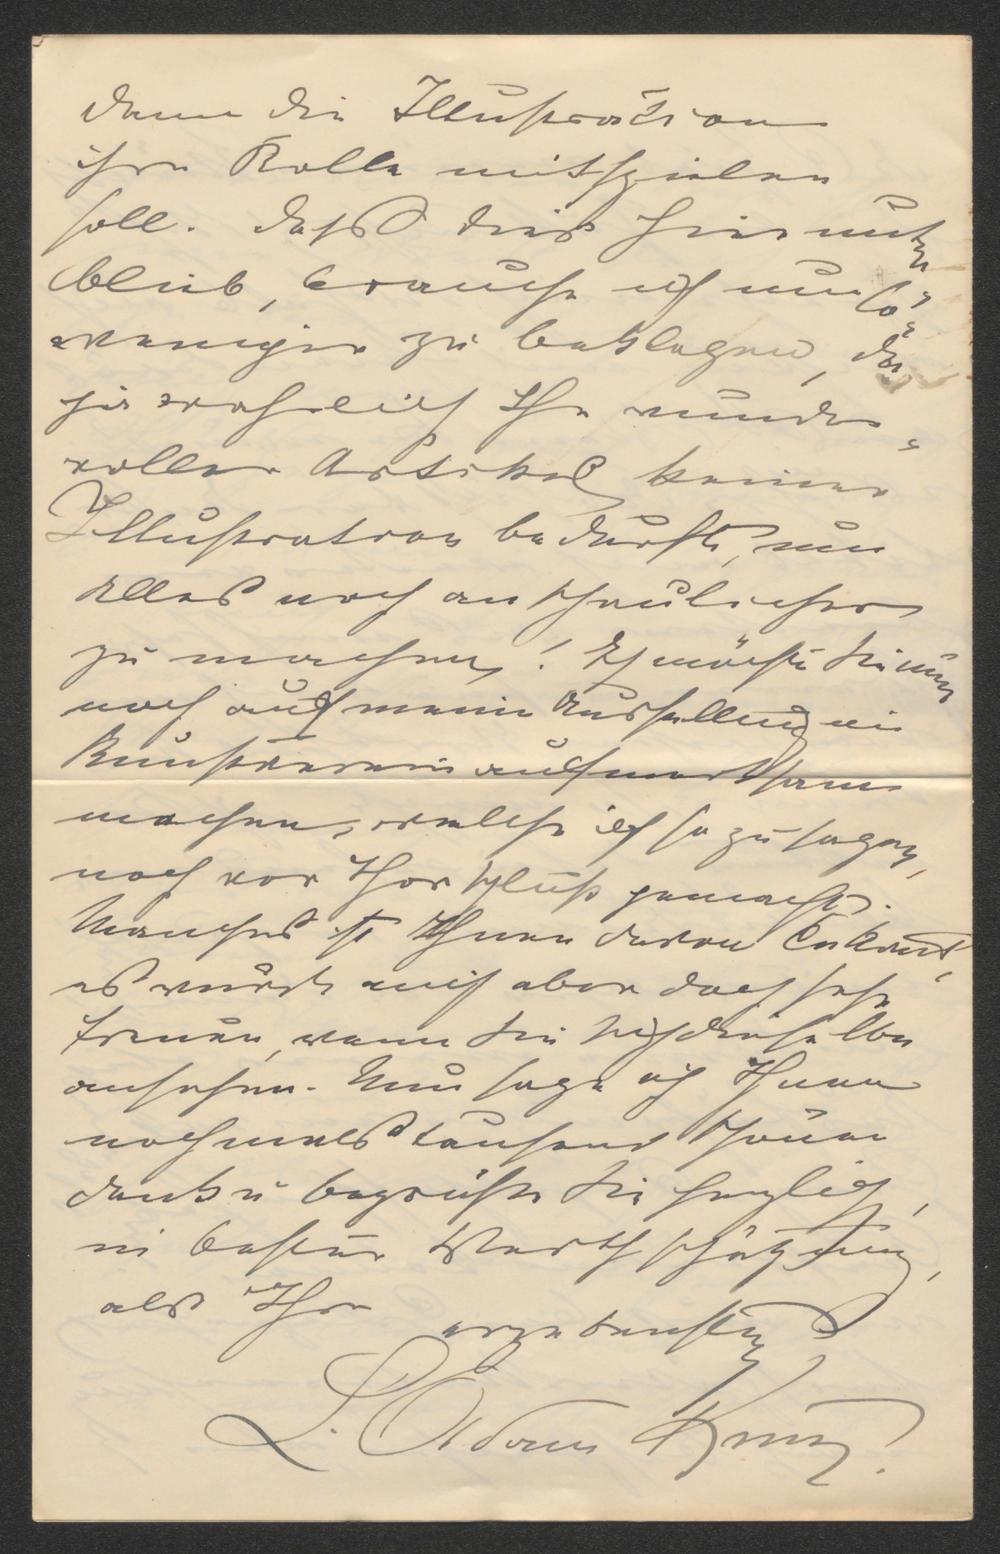 dann die Illustration
ihre Rolle mitspielen
soll. Dass dies hier aus
blieb, brauche ich um so
weniger zu beklagen, da
ja wahrlich Ihr wunder-
voller Artikel keiner
Illustration bedurfte, um
Alles noch anschaulicher
zu machen! Ich möchte Sie nun
noch auf meine Ausstellung im
Kunstverein aufmerksam
machen, welche ich so zu sagen,
noch vor Thorschluß gemacht.
Manches ist Ihnen davon bekannt,
es würde mich aber doch sehr
freuen, wenn Sie sich dieselbe
ansehen. Nun sage ich Ihnen
nochmals tausend schönen
Dank u begrüße Sie herzlich,
in bester Werthschätzung,
als Ihr
ergebenster
L. Adam Kunz.